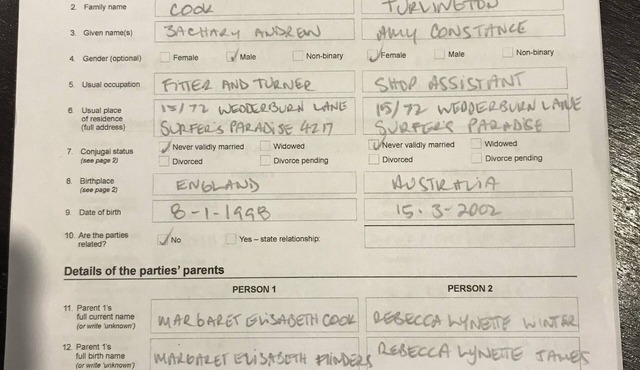 2. Family name COOK TURLINGTON
3. Given name(s) ZACHARY ANDREW AMY CONSTANCE
4. Gender (optional) Female Male Non-binary Female Male Non-binary
5. Usual occupation FITTER AND TURNER SHOP ASSISTANT
6. Usual place of residence (full address) 15/72 WEDDERBURN LANE 15/72 WEDDERBURN LANE
SURFER'S PARADISE 4217 SURFER'S PARADISE
7. Conjugal status Never validly married Widowed Never validly married Widowed
(see page 2) Divorced Divorce pending Divorced Divorce pending
8. Birthplace (see page 2) ENGLAND AUSTRALIA
9. Date of birth 8-1-1998 15.3-2002
10. Are the parties related? No Yes – state relationship:
Details of the parties' parents
PERSON 1 PERSON 2
11. Parent 1's full current name (or write 'unknown') MARGARET ELISABETH COOK REBECCA LYNETTE WINTER
12. Parent 1's full birth name (or write 'unknown') MARGARET ELISABETH FLINDERS REBECCA LYNETTE JAMES